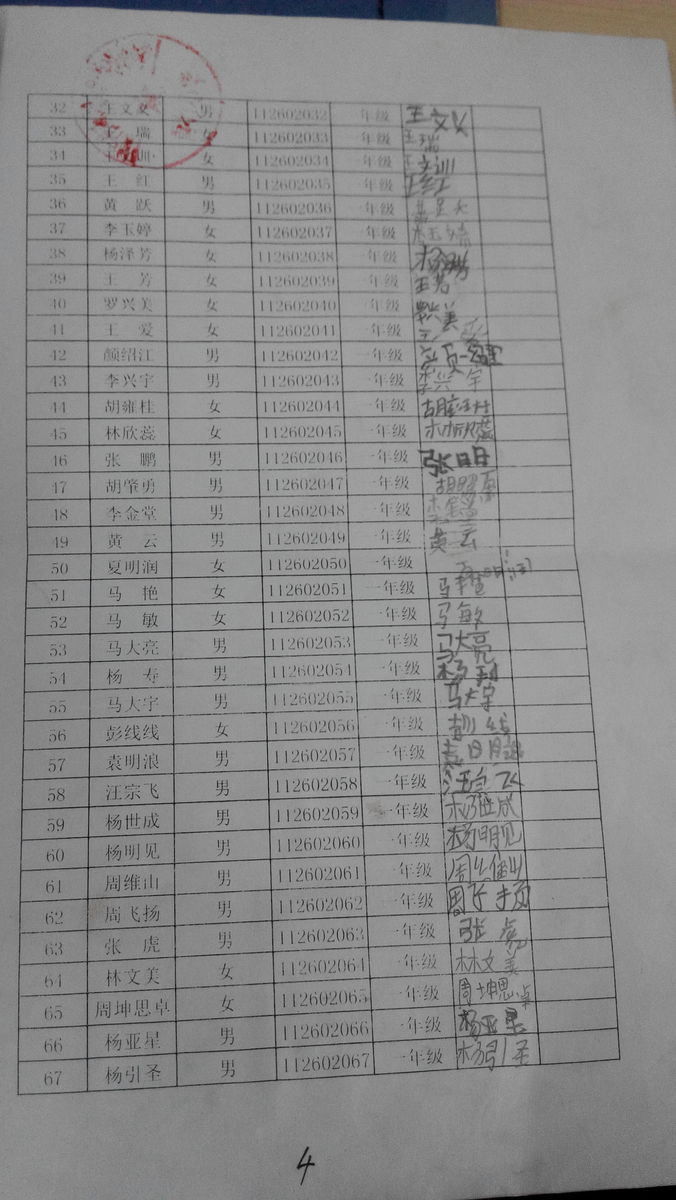 32 王文义 男 112602032 一年级 王文义
33 王 瑞 女 112602033 一年级 王瑞
34 女 112602034 一年级
35 王 红 男 112602035 一年级 王红
36 黄 跃 男 112602036 一年级
37 李玉婷 女 112602037 一年级
38 杨泽芳 女 112602038 一年级
39 王 芳 女 112602039 一年级 王芳
40 罗兴美 女 112602040 一年级
41 王 爱 女 112602041 一年级 王爱
42 颜绍江 男 112602042 一年级
43 李兴宇 男 112602043 一年级 李兴宇
44 胡雍桂 女 112602044 一年级
45 林欣蕊 女 112602045 一年级 林欣蕊
46 张 鹏 男 112602046 一年级
47 胡肇勇 男 112602047 一年级
48 李金堂 男 112602048 一年级
49 黄 云 男 112602049 一年级 黄云
50 夏明润 女 112602050 一年级
51 马 艳 女 112602051 一年级
52 马 敏 女 112602052 一年级 马敏
53 马大亮 男 112602053 一年级 马大亮
54 杨 寿 男 112602054 一年级
55 马大宇 男 112602055 一年级 马大宇
56 彭线线 女 112602056 一年级
57 袁明浪 男 112602057 一年级
58 汪宗飞 男 112602058 一年级 汪宗飞
59 杨世成 男 112602059 一年级
60 杨明见 男 112602060 一年级 杨明见
61 周维山 男 112602061 一年级
62 周飞扬 男 112602062 一年级 周飞扬
63 张 虎 男 112602063 一年级 张虎
64 林文美 女 112602064 一年级 林文美
65 周坤思卓 女 112602065 一年级 周坤思卓
66 杨亚星 男 112602066 一年级 杨亚星
67 杨引圣 男 112602067 一年级 杨引圣
4